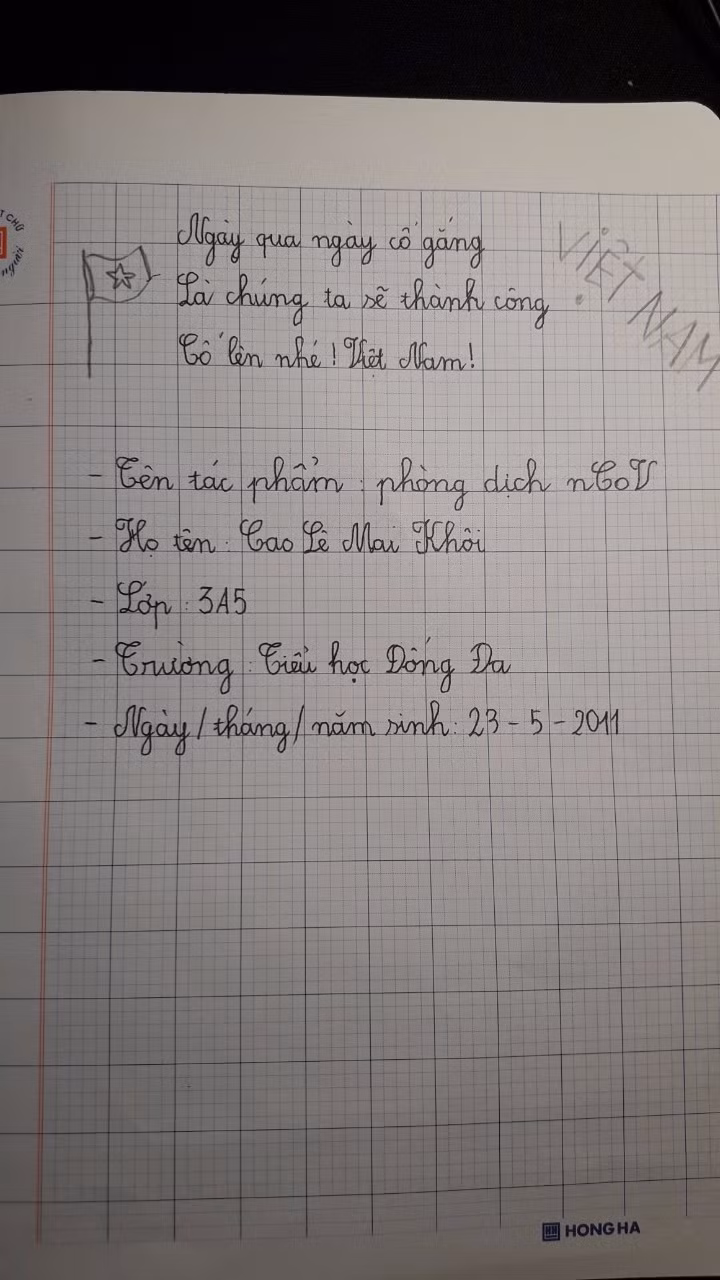 Ngày qua ngày cố gắng
Là chúng ta sẽ thành công
Cố lên nhé! Việt Nam!
VIỆT NAM
- Tên tác phẩm: phòng dịch nCoV
- Họ tên: Cao Lê Mai Khôi
- Lớp: 3A5
- Trường: Tiểu học Đống Đa
- Ngày/tháng/năm sinh: 23-5-2011
CHỮ
người
HONG HA